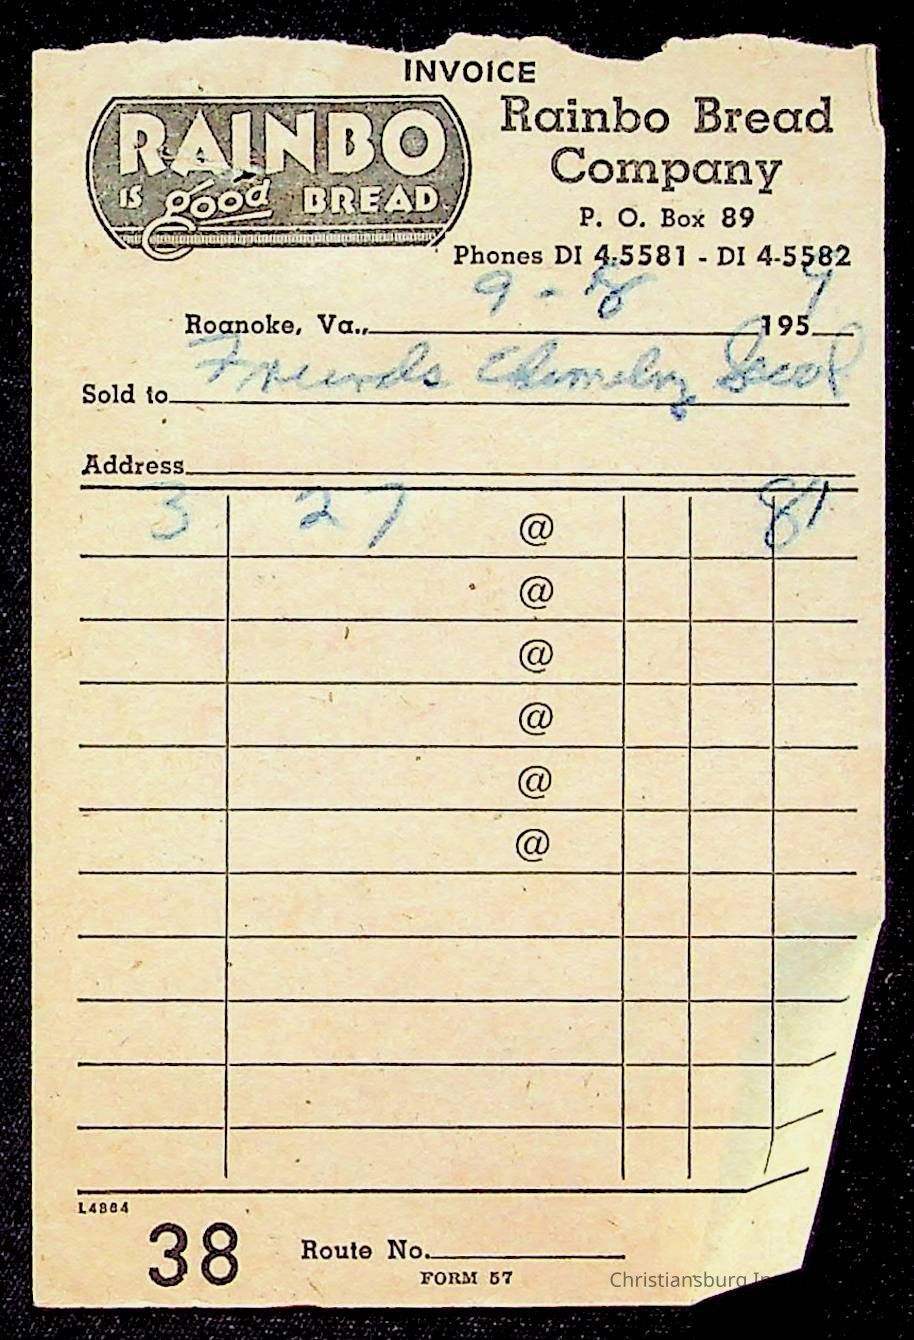 INVOICE
RAINBO
IS good BREAD
Rainbo Bread
Company
P. O. Box 89
Phones DI 4-5581 - DI 4-5582
Roanoke, Va., 9-8 1957
Sold to Friends
Address
3 27 @ 81
@
@
@
@
@
L4864
38 Route No.
FORM 57
Christiansburg